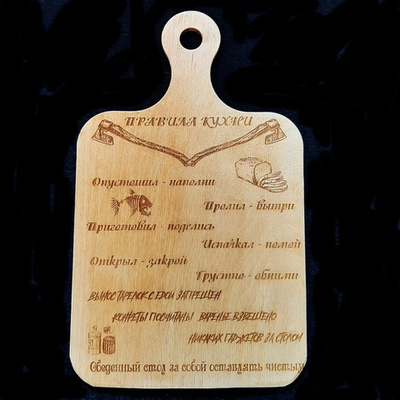 ПРАВИЛА КУХНИ
Опустошил - наполни
Пролил - вытри
Приготовил - поделись
Испачкал - помой
Открыл - закрой
Грустно - обними
ВЫНОС ТАРЕЛОК С ЕДОЙ ЗАПРЕЩЕН
КОНФЕТЫ ПОСЧИТАНЫ ВАРЕНЬЕ ВЗВЕШЕНО
НИКАКИХ ГАДЖЕТОВ ЗА СТОЛОМ
Обеденный стол за собой оставлять чистым